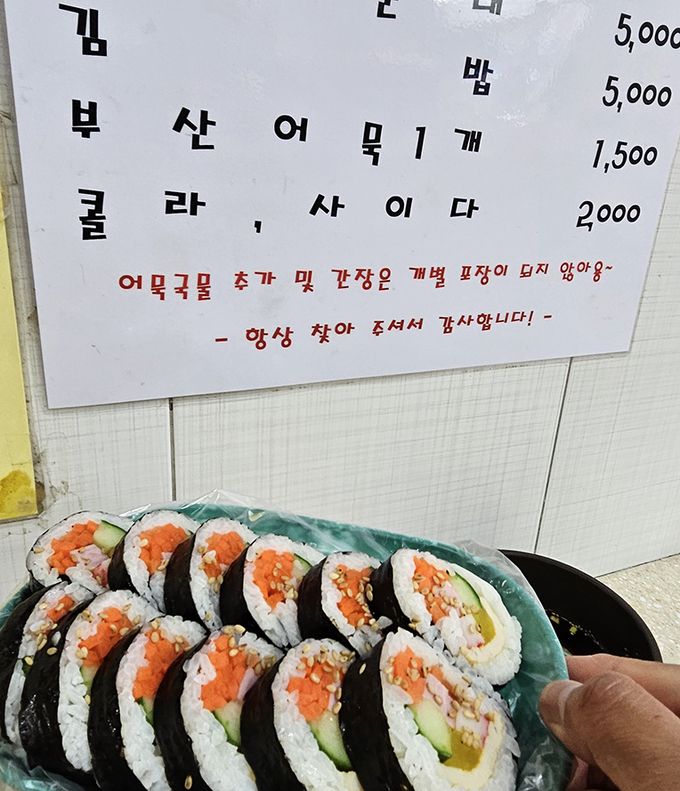 5,000
김 밥 5,000
부 산 어 묵 1 개 1,500
콜 라 , 사 이 다 2,000
어묵국물 추가 및 간장은 개별 포장이 되지 않아용~
- 항상 찾아 주셔서 감사합니다! -